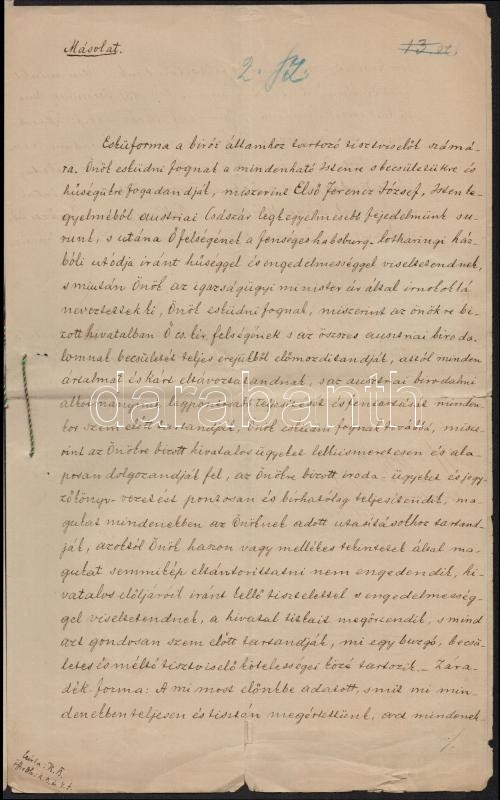 Másolat.
13.
2.
Esküforma a birói államhoz tartozó tisztviselők számá-
ra. Önök esküdni fognak a mindenható Istenre s becsületükre és
hűségükre fogadandják, miszerint Első Ferencz József, Isten ke-
gyelméből austriai Császár legkegyelmesebb fejedelmünk su-
runt, s utána Ő felségének a fenséges habsburg-lotharingi ház-
bóli utódja iránt hűséggel és engedelmességgel viseltetendnek,
s miután Önök az igazságügyi minister úr által irnokokká
neveztettek ki, Önök esküdni fognak, miszerint az önökre bi-
zott hivatalban Ő cs. kir. felségének s az összes austriai biroda-
lomnak becsületés teljes erejükből előmozditandják, attól minden
ártalmat és kárt eltávoztatandnak, s az austriai birodalmi
alkotmánynak legpontosabb teljesitését és fentartását minden-
kor szem előtt tartandják. Önök esküdni fognak továbbá, misze-
rint az Önökre bizott hivatalos ügyeket lelkiismeretesen és ala-
posan dolgozandják fel, az Önökre bizott iroda-ügyeket és jegy-
zőkönyv-vezetést pontosan és birhatólag teljesitendik, ma-
gukat mindenekben az Önöknek adott utasitásokhoz tartand-
ják, azoktól Önök haszon vagy mellékes tekintetek által ma-
gukat semmikép eltántorittatni nem engedendik, hi-
vatalos elöljáróik iránt kellő tisztelettel s engedelmesség-
gel viseltetendnek, a hivatal titkait megőrzendik, s mind
azt gondosan szem előtt tartandják, mi egy buzgó, becsü-
letes és méltó tisztviselő kötelességei közé tartozik. – Zára-
dék-forma: A mi most előnkbe adatott, s mit mi min-
denekben teljesen és tisztán megértettünk, azt mindenek-
./.
darabanth